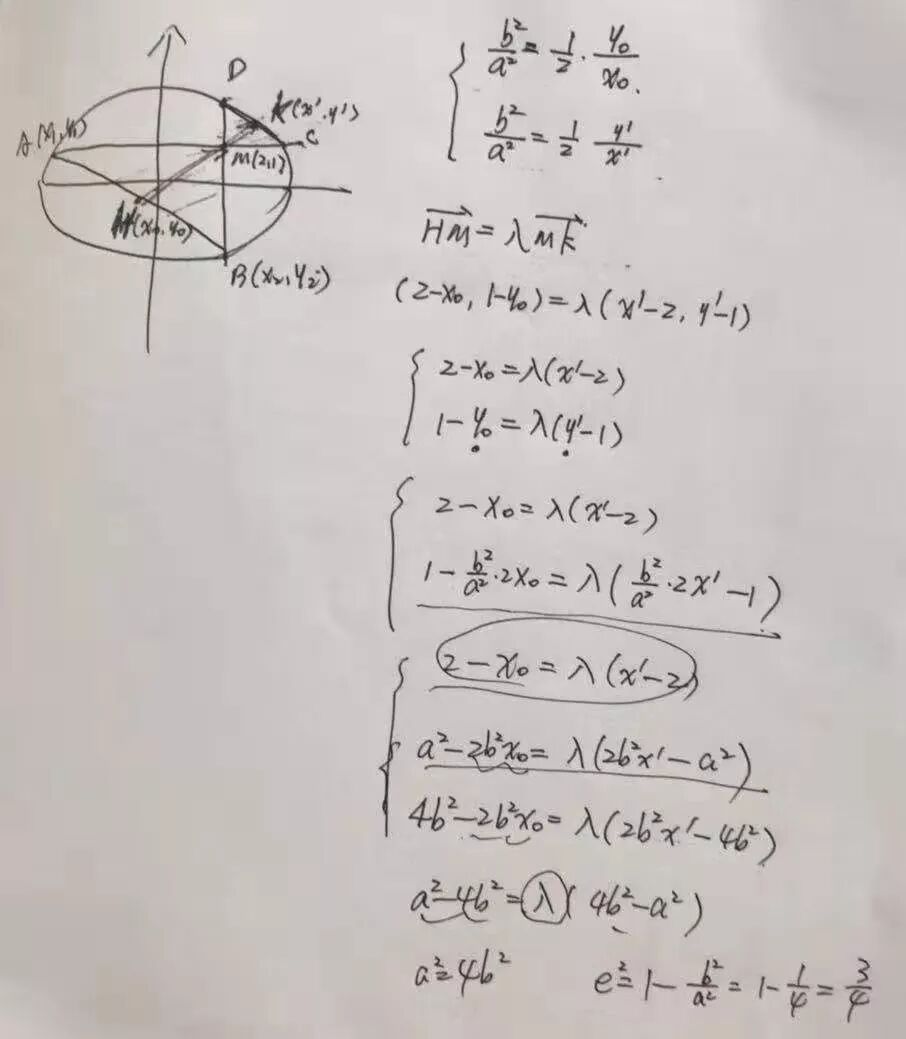 D
K(x',y')
A(x₁,y₁)
C
M(2,1)
H(x₀,y₀)
B(x₂,y₂)
b²/a² = 1/2 · y₀/x₀.
b²/a² = 1/2 y'/x'
HM = λMK
(2-x₀, 1-y₀) = λ(x'-2, y'-1)
2-x₀ = λ(x'-2)
1-y₀ = λ(y'-1)
2-x₀ = λ(x'-2)
1 - b²/a² · 2x₀ = λ(b²/a² · 2x' - 1)
2-x₀ = λ(x'-2)
a²-2b²x₀ = λ(2b²x'-a²)
4b²-2b²x₀ = λ(2b²x'-4b²)
a²-4b² = λ(4b²-a²)
a²=4b² e²=1-b²/a²=1-1/4=3/4